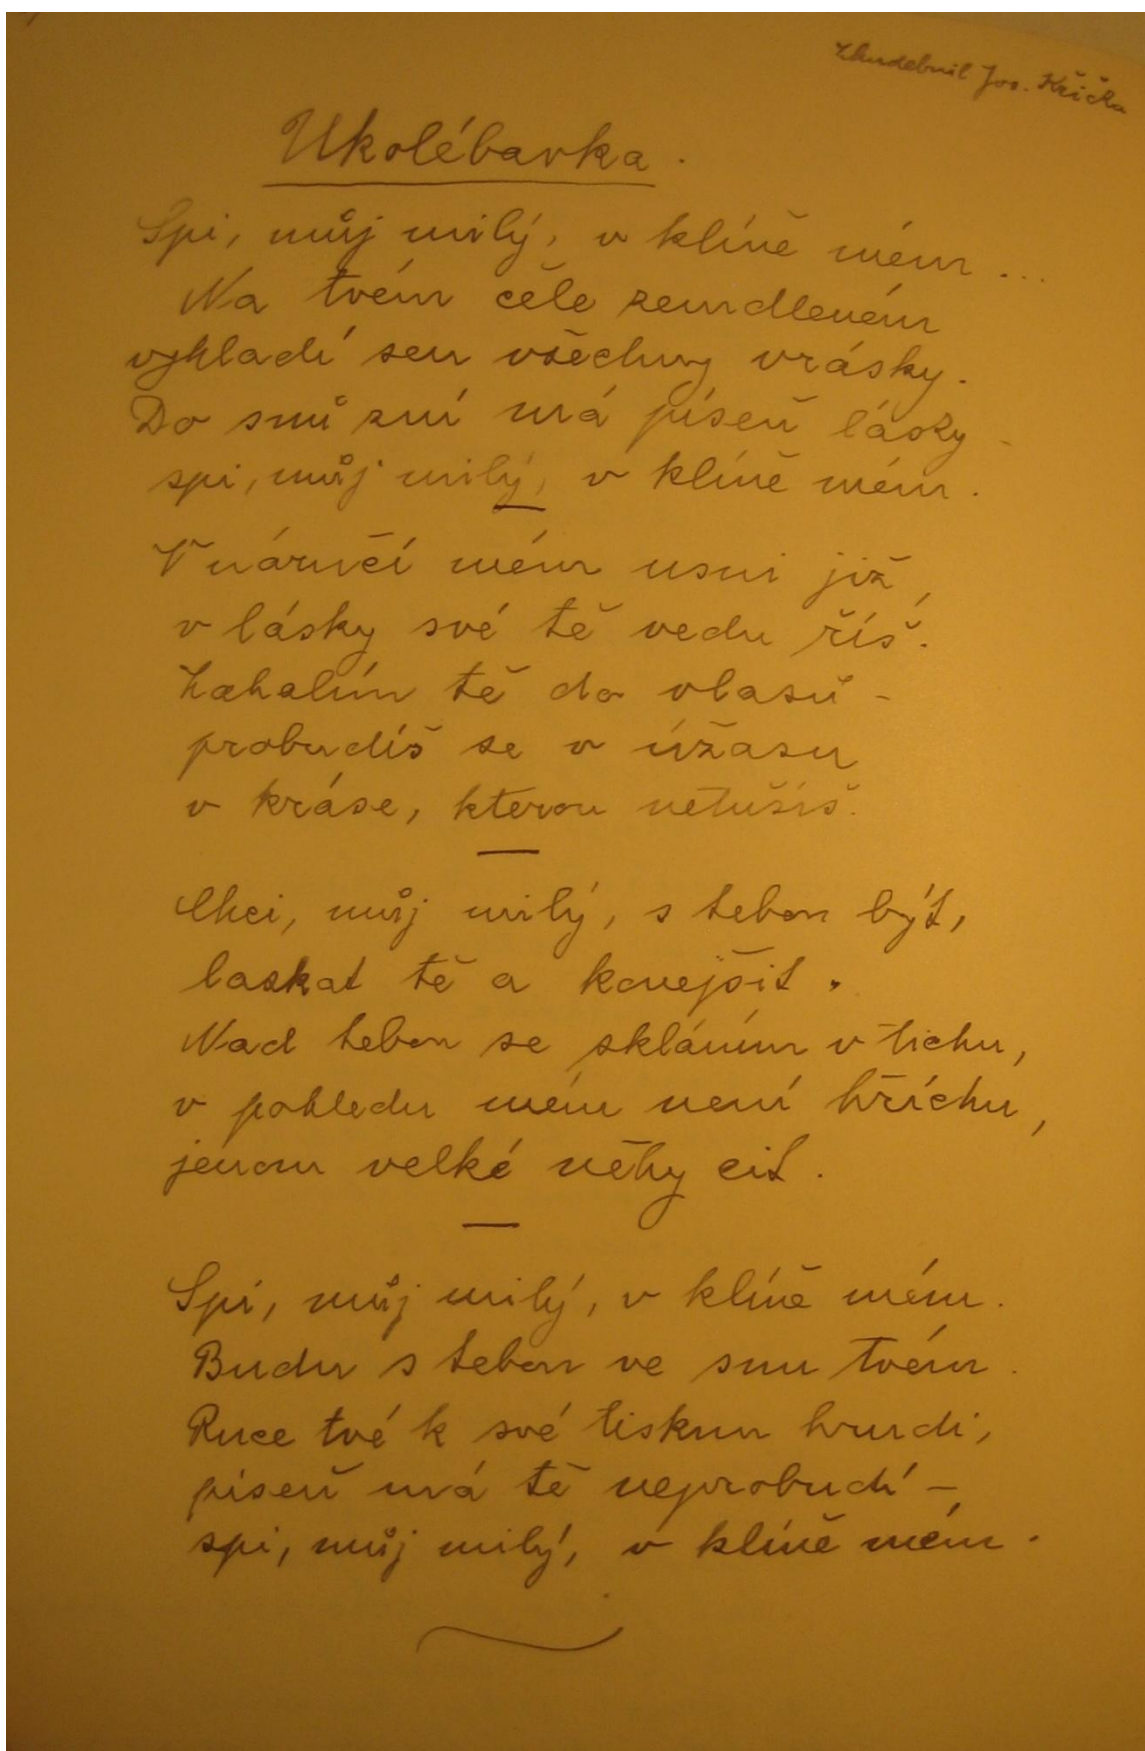 Zhudebnil Jos. Křička
Ukolébavka.
Spi, můj milý, v klíně mém...
Na tvém čele zemdleném
vyhladí sen všechny vrásky.
Do snů zní má píseň lásky -
spi, můj milý, v klíně mém.
V náručí mém usni již,
v lásky své tě vedu říš.
Zahalím tě do vlasů -
probudíš se v úžasu
v kráse, kterou netušíš.
Chci, můj milý, s tebou být,
laskat tě a konejšit.
Nad tebou se skláním v tichu,
v pohledu mém není hříchu,
jenom velké něhy cit.
Spi, můj milý, v klíně mém.
Budu s tebou ve snu tvém.
Ruce tvé k své tisknu hrudi,
píseň má tě neprobudí -
spi, můj milý, v klíně mém.